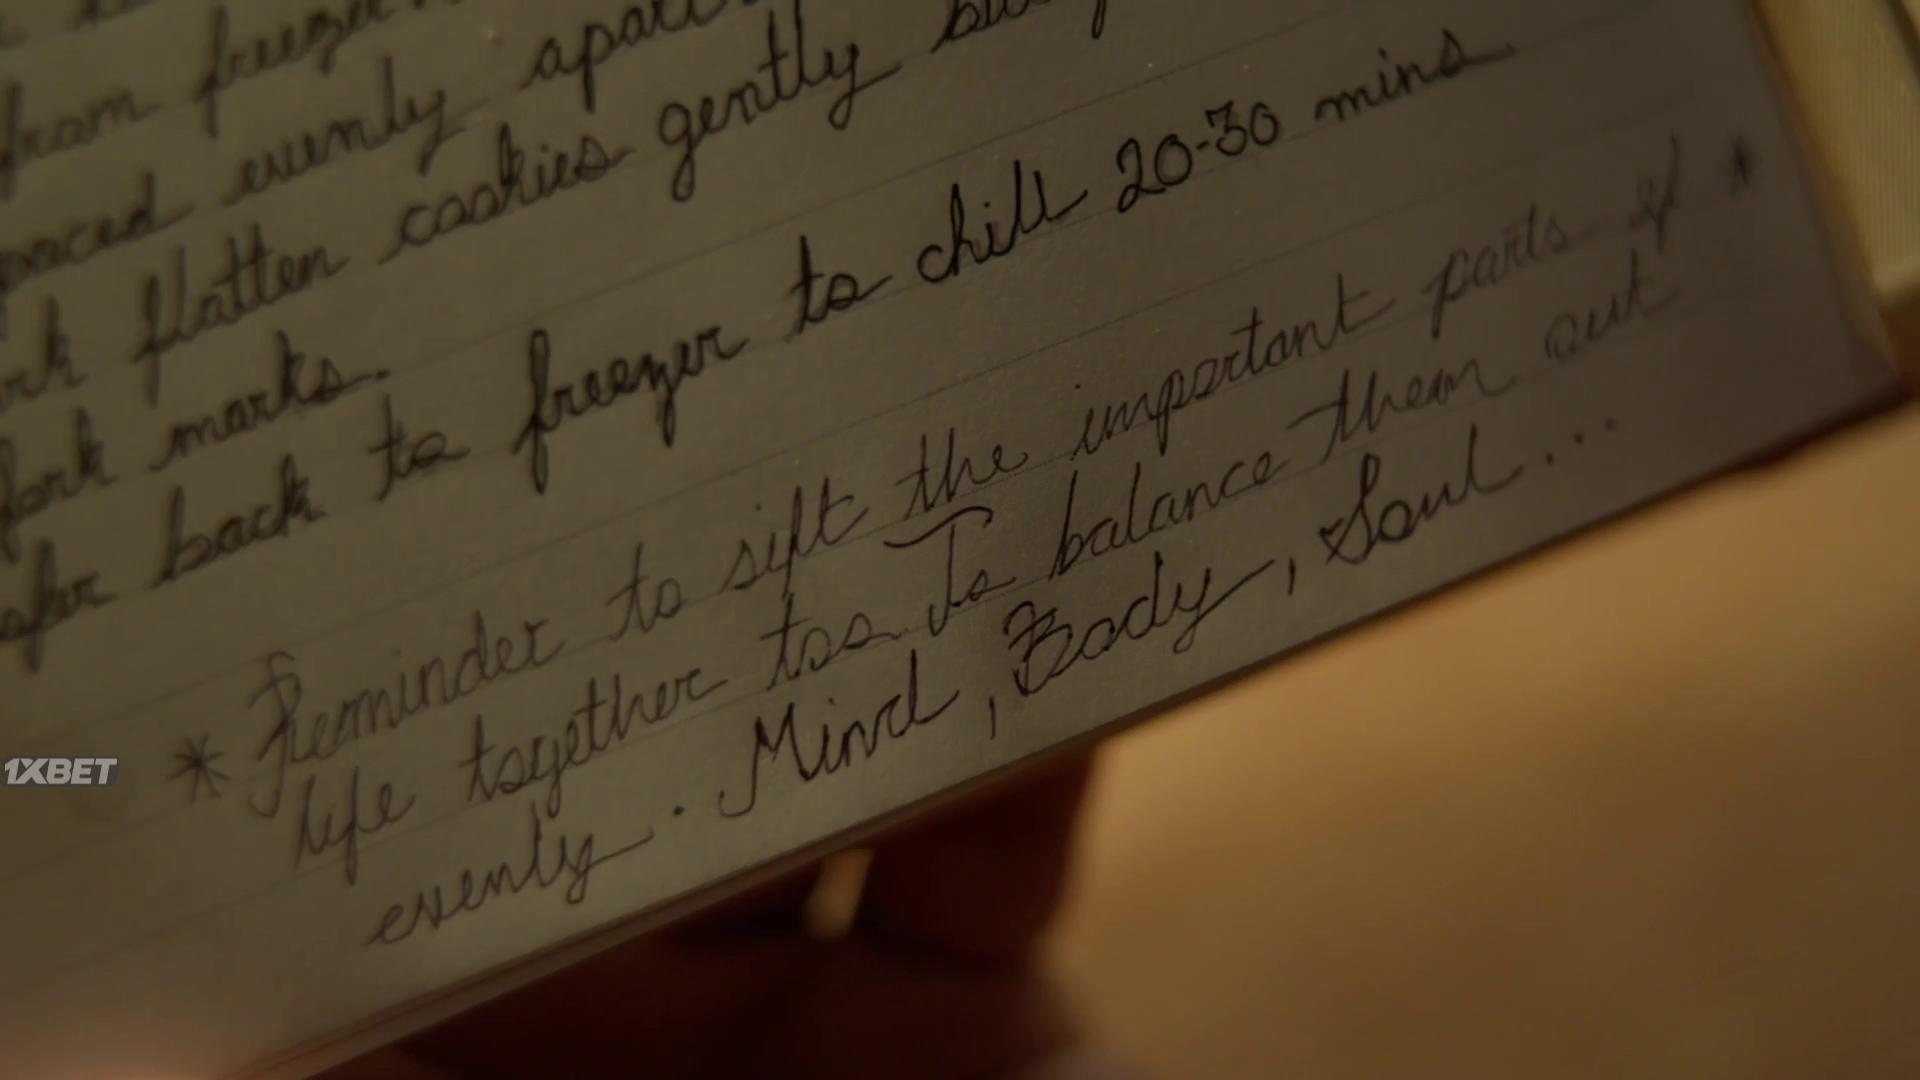 from freezer
evenly apart
flatten cookies gently
fork marks.
back to freezer to chill 20-30 mins
* Reminder to sift the important parts of *
life together too. To balance them out
evenly. Mind, Body, Soul...
1XBET